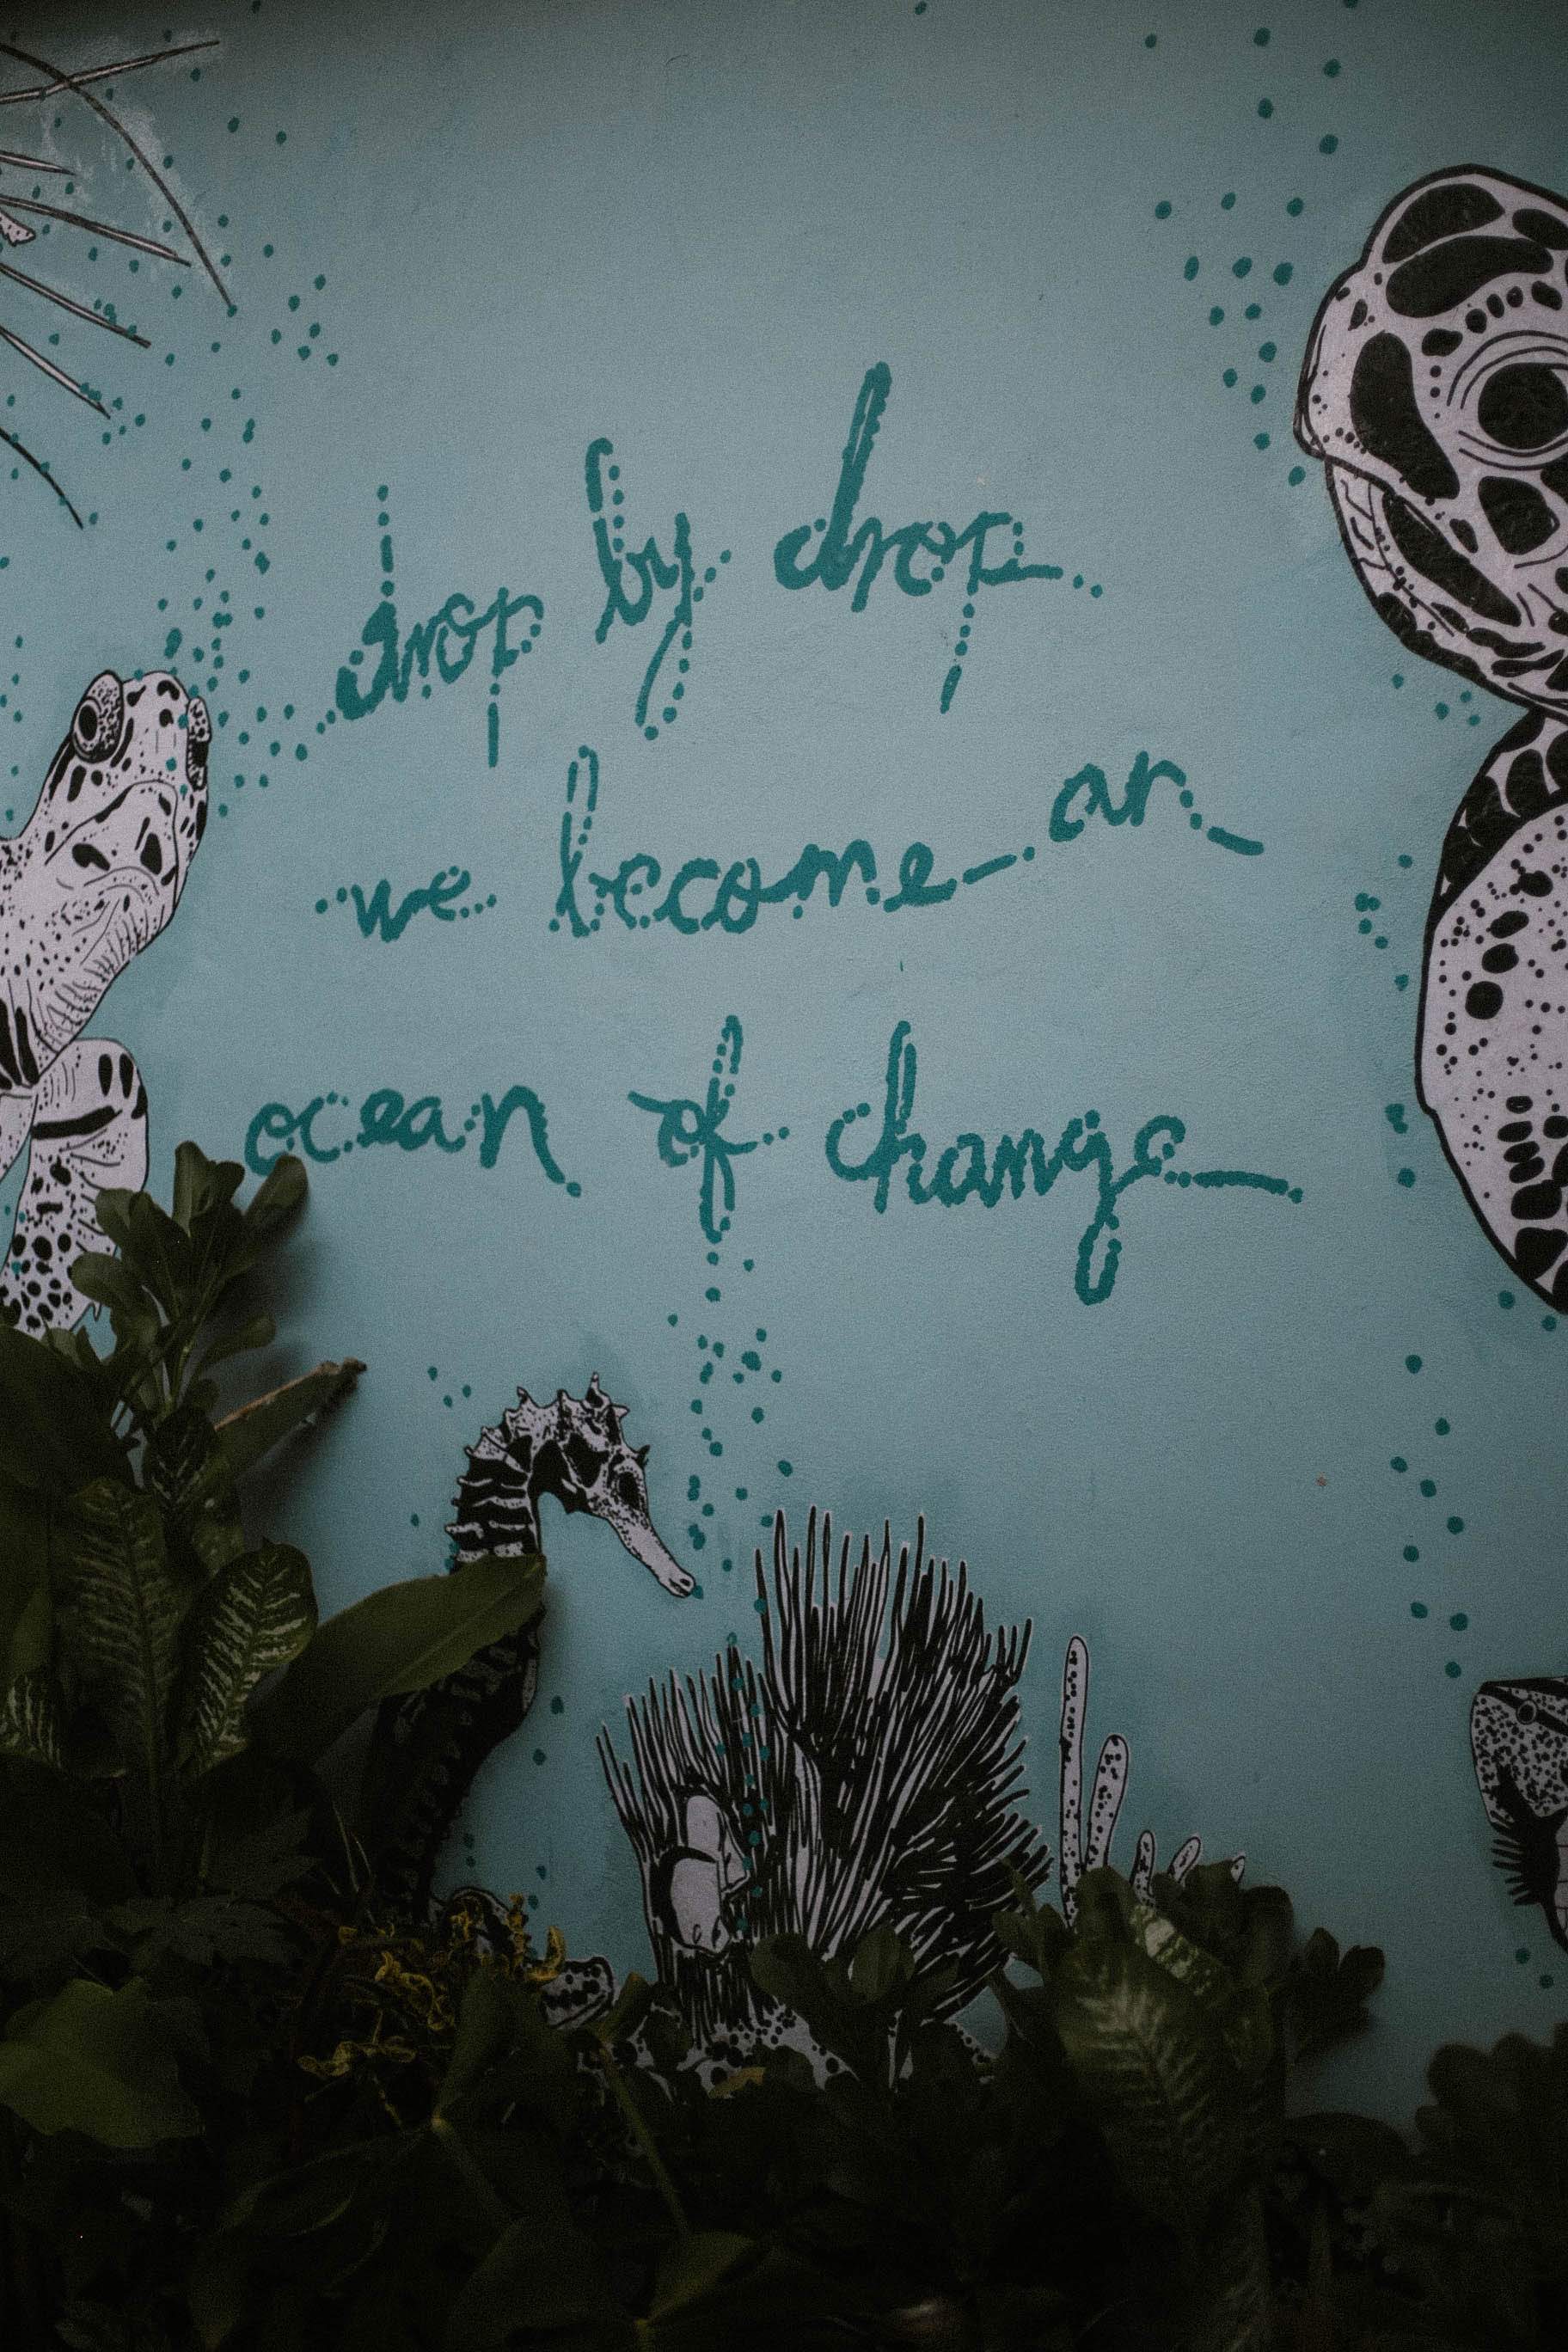 drop by drop
we become an
ocean of change